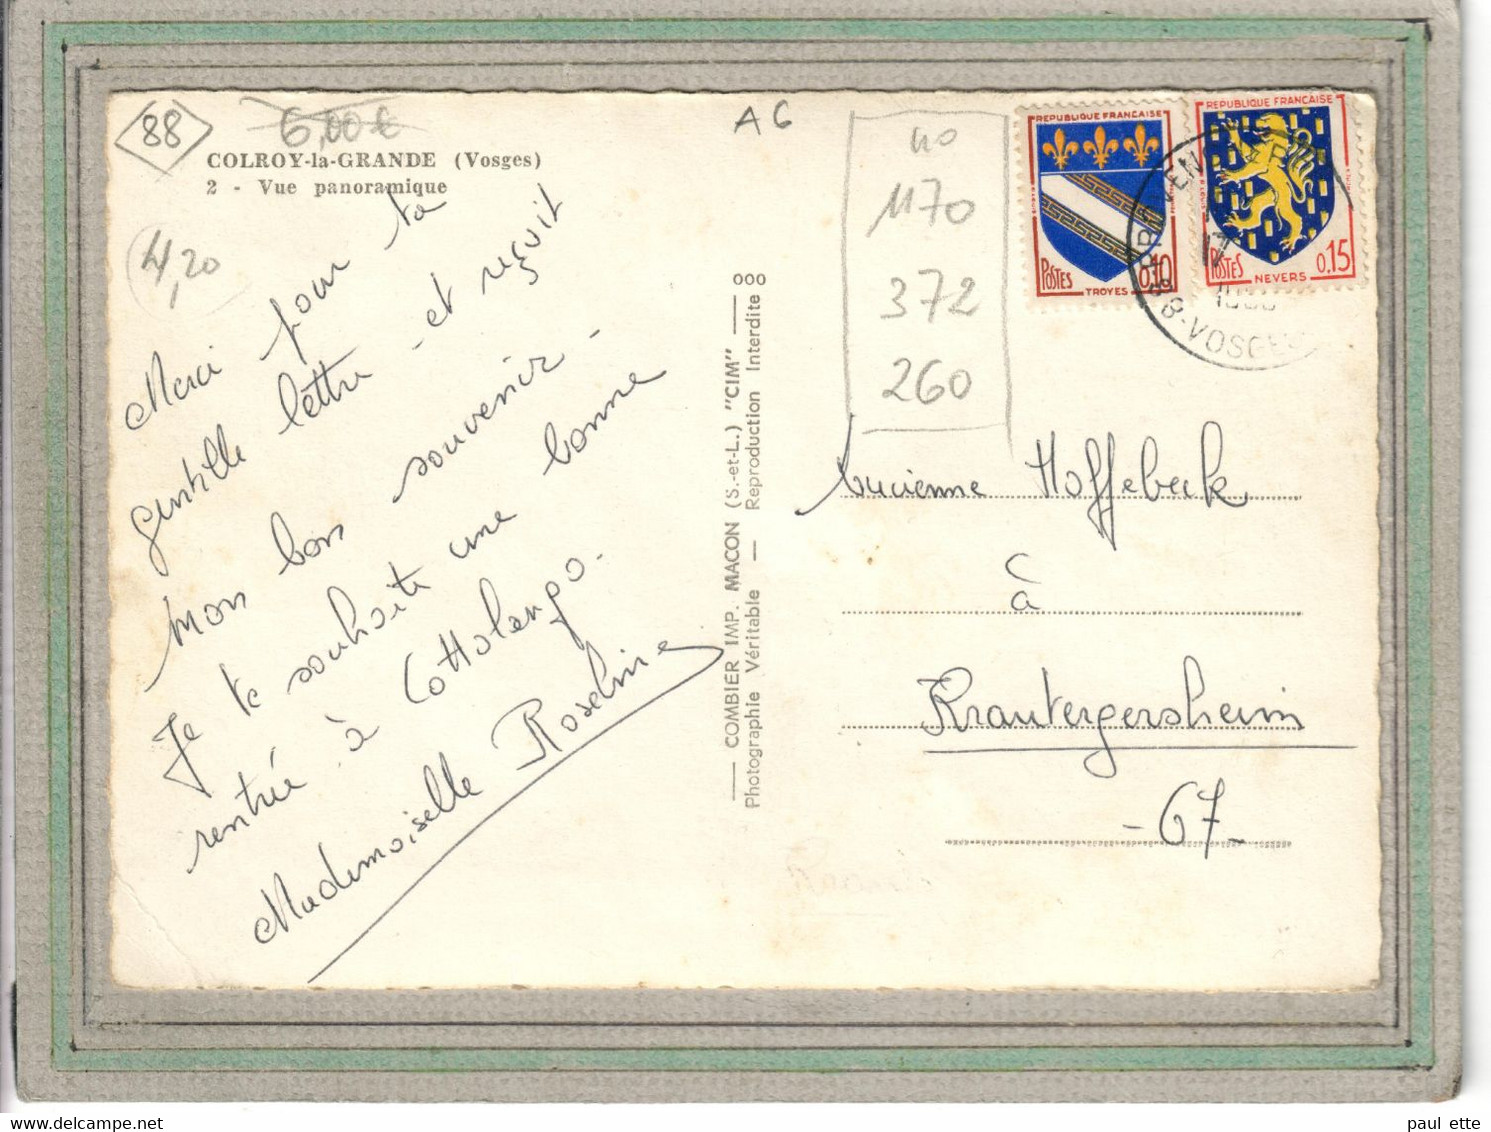 88
6,00€
COLROY-la-GRANDE (Vosges)
2 - Vue panoramique
4,20
Merci pour ta
gentille lettre - et reçoit
mon bon souvenir -
Je te souhaite une bonne
rentrée à Cottolengo -
Mademoiselle Roseline
COMBIER IMP. MACON (S.-et-L.) "CIM"
Photographie Véritable — Reproduction Interdite
000
A6
40
1170
372
260
REPUBLIQUE FRANÇAISE
POSTES
0,10
TROYES
REPUBLIQUE FRANÇAISE
POSTES
0,15
NEVERS
17
88-VOSGES
Lucienne Hoffebeck
à
Krautergersheim
- 67 -
paul ette